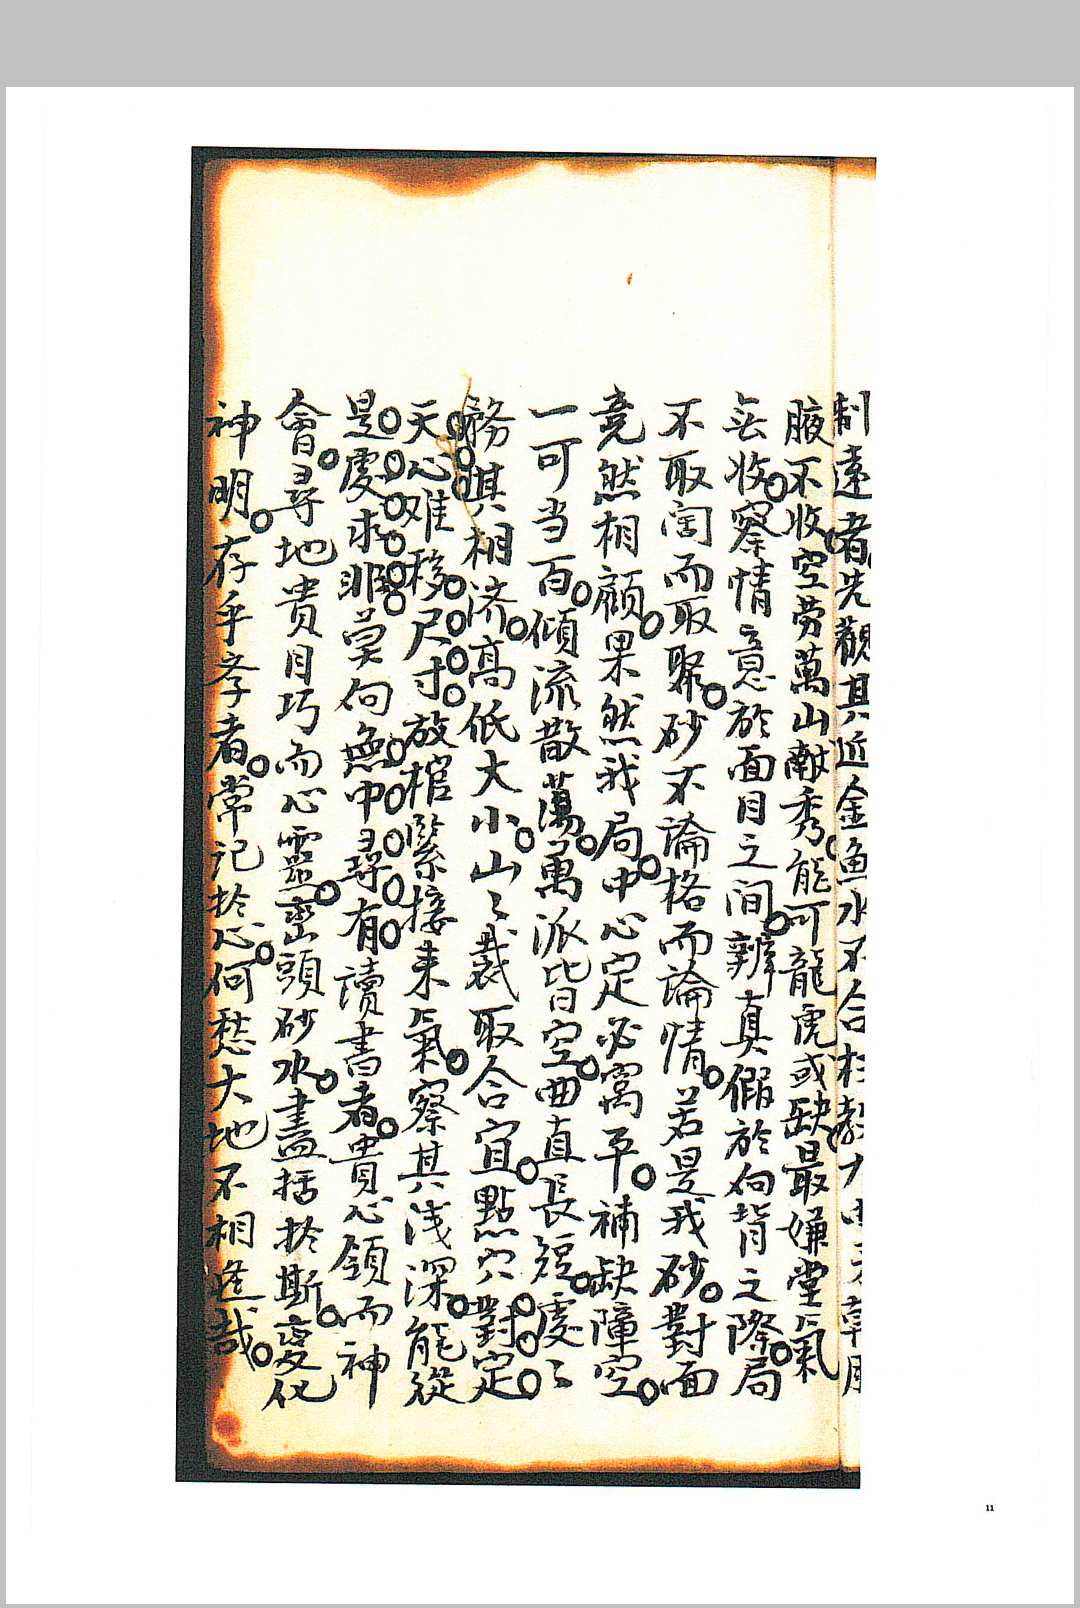 制遠者先觀其近金魚水不合
腋不收空劳萬山献秀龍可龍虎或缺最嫌堂氣
無收察情意於面目之间辨真假於向背之際局
不取闊而取聚砂不論格而論情若是我砂對面
竟然相顧果然我局中心定必窩平補缺障空
一可当百傾流散蕩萬派皆空曲直長短處々
務其相济高低大小山々裁取合宜點穴對定
天心难移尺寸放棺緊接来氣察其浅深能從
是處求非莫向無中尋有讀書者貴心領而神
會尋地貴目巧而心靈巒頭砂水盡括於斯變化
神明存乎孝者常记於心何愁大地不相逢哉
11